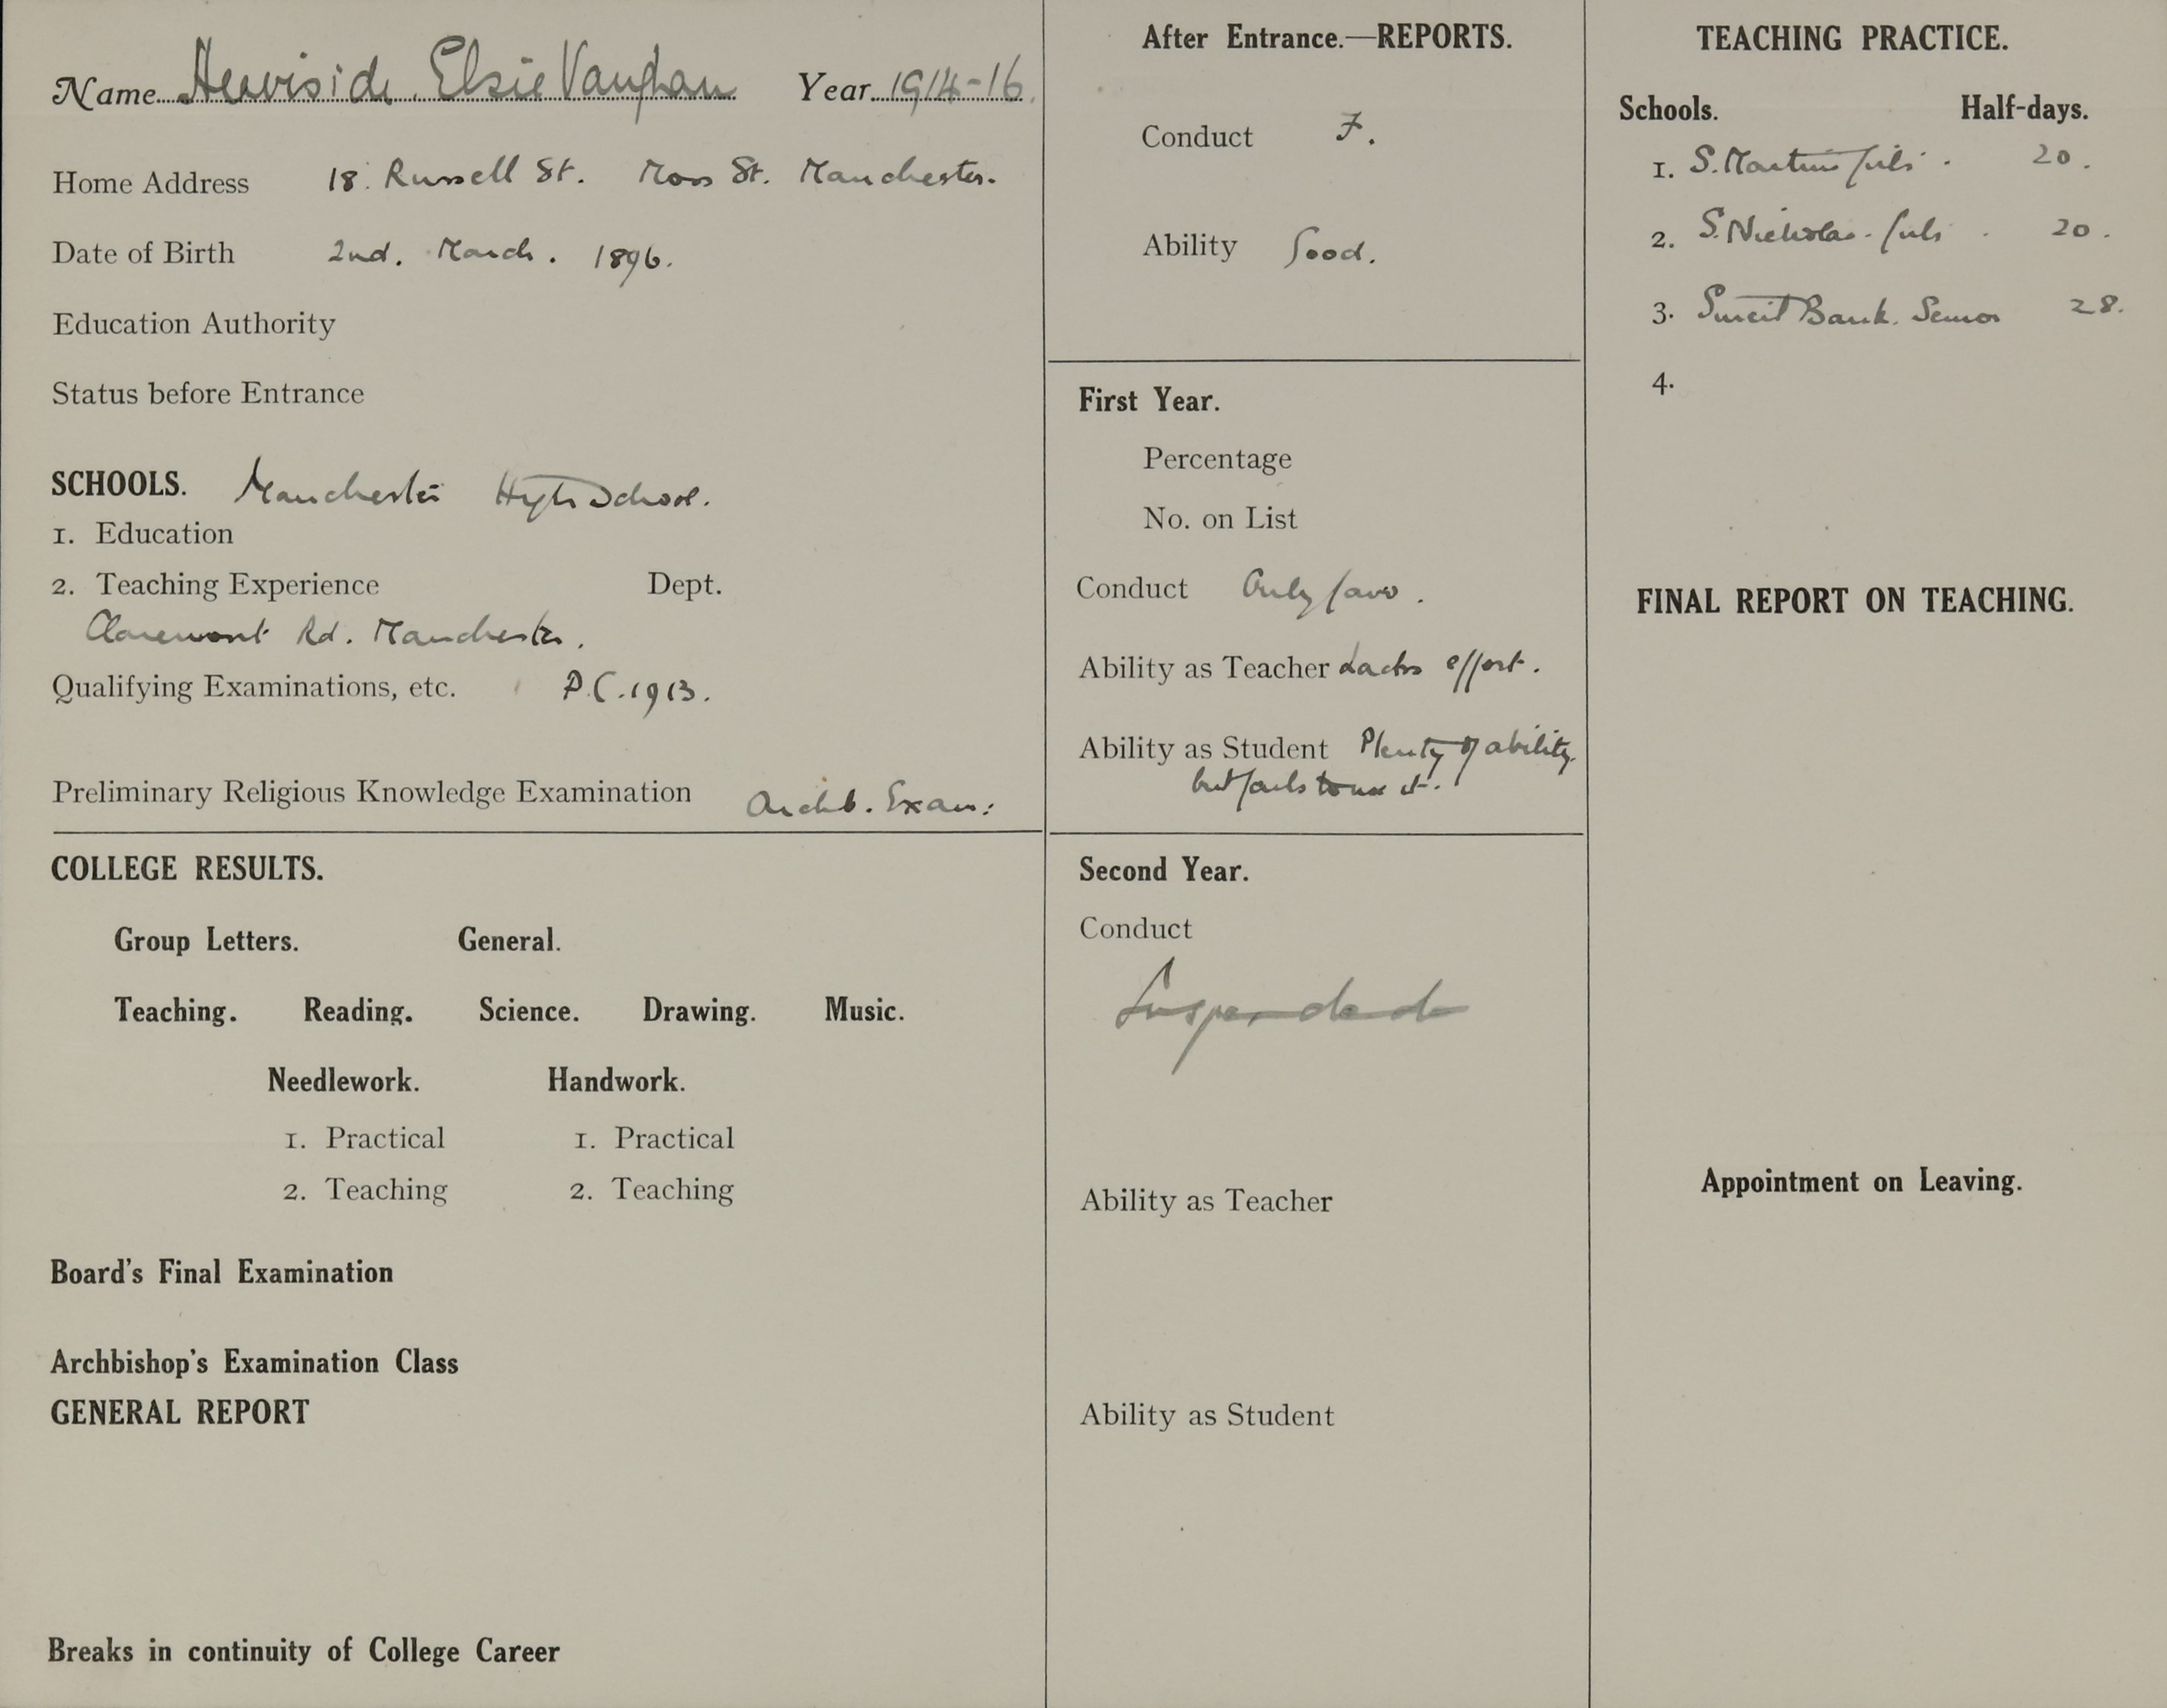 Name Heaviside Elsie Vaughan Year 1914-16.
Home Address 18. Russell St. Moss St. Manchester.
Date of Birth 2nd. March. 1896.
Education Authority
Status before Entrance
SCHOOLS. Manchester High School.
1. Education
2. Teaching Experience Dept.
Claremont Rd. Manchester.
Qualifying Examinations, etc. P.C. 1913.
Preliminary Religious Knowledge Examination Archb. Exam:
COLLEGE RESULTS.
Group Letters. General.
Teaching. Reading. Science. Drawing. Music.
Needlework. Handwork.
1. Practical 1. Practical
2. Teaching 2. Teaching
Board's Final Examination
Archbishop's Examination Class
GENERAL REPORT
Breaks in continuity of College Career
After Entrance.—REPORTS.
Conduct F.
Ability Good.
First Year.
Percentage
No. on List
Conduct Only fair.
Ability as Teacher Lacks effort.
Ability as Student Plenty of ability
but fails to use it.
Second Year.
Conduct
Suspended
Ability as Teacher
Ability as Student
TEACHING PRACTICE.
Schools. Half-days.
1. S. Martins Girls. 20.
2. S. Nicholas. Girls. 20.
3. Bank. Senior 28.
4.
FINAL REPORT ON TEACHING.
Appointment on Leaving.